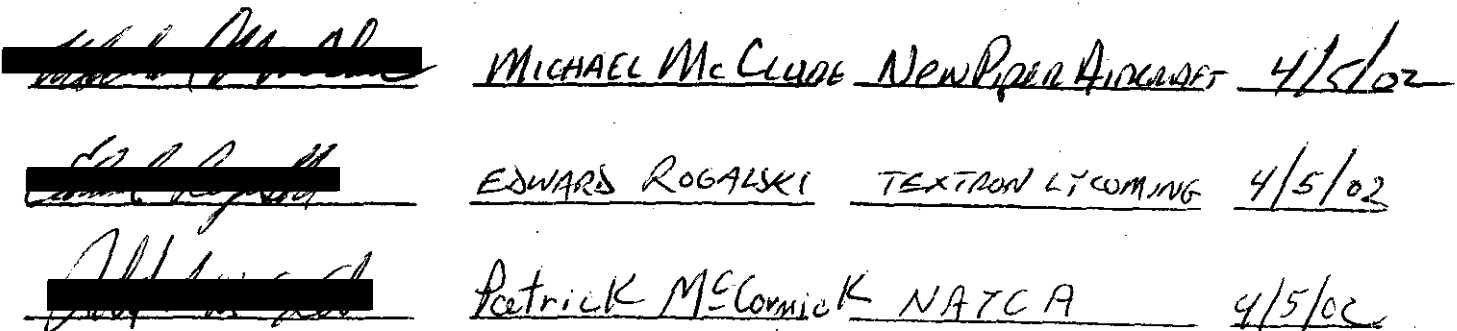 MICHAEL McCLURE New Piper Aircraft 4/5/02
EDWARD ROGALSKI TEXTRON LYCOMING 4/5/02
Patrick McCormick NATCA 4/5/02